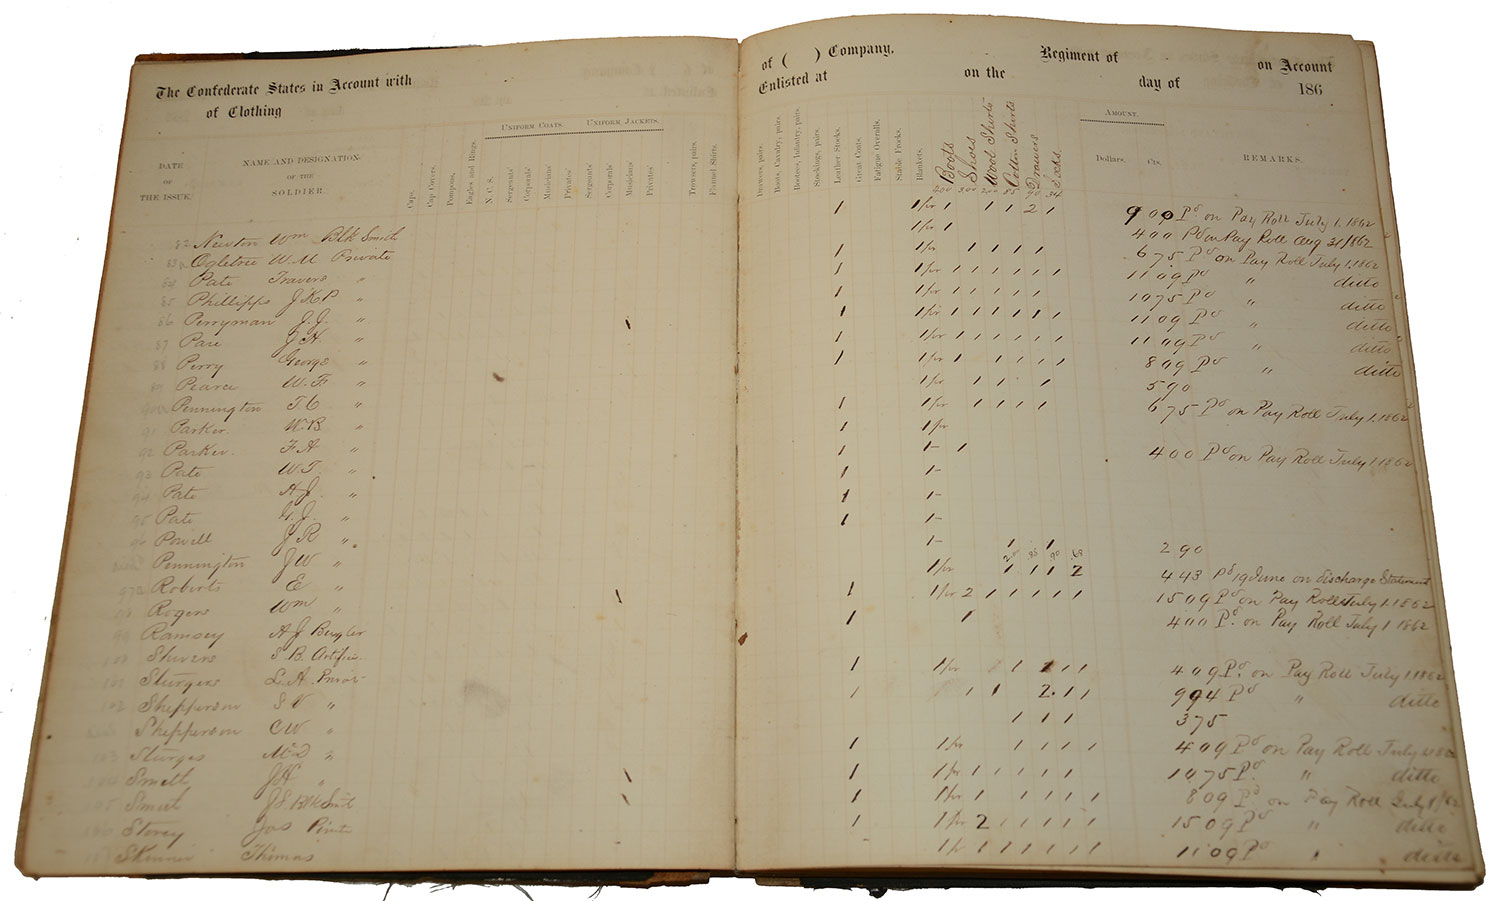 The Confederate States in Account with
of Clothing
DATE OF THE ISSUE.
NAME AND DESIGNATION OF THE SOLDIER.
UNIFORM COATS. UNIFORM JACKETS.
Caps. Cap Covers. Pompons. Eagles and Rings. N. C. S. Sergeants' Corporals' Musicians' Privates' Sergeants' Corporals' Musicians' Privates' Trowsers, pairs. Flannel Shirts.
82 Newton Wm Blk Smith
Ogletree W. M Private
84 Pate Travers "
85 Phillipps J K P "
86 Perryman J. J. "
87 Pace J H. "
88 Perry George "
89 Pearce W. F "
Pennington T. C "
91 Parker. W. B. "
92 Parker. F A "
93 Pate W T. "
94 Pate A J. "
95 Pate G. J. "
96 Powell J R "
Pennington J W "
Roberts E "
98 Rogers Wm "
99 Ramsey A J Bugler
100 Shivers S. B. Artificer
101 Sturgers L. A. Private
102 Shepperson S V "
Shepperson C W "
103 Sturges "
104 Smith J H "
105 Smith J S. Blk Smit
106 Storey Jas Private
Skinner Thomas
of ( ) Company. Regiment of on Account
Enlisted at on the day of 186
AMOUNT.
Drawers, pairs. Boots, Cavalry, pairs. Bootees, Infantry, pairs. Stockings, pairs. Leather Stocks. Great Coats. Fatigue Overalls. Stable Frocks. Blankets. Boots Shoes Wool Shirts Cotton Shirts Drawers Socks. Dollars. Cts. REMARKS.
1 1/pr 1 1 1 2 1 9 00 Pd on Pay Roll July 1, 1862
1/pr 1 4 00 Pd on Pay Roll Aug 31/1862
1 1/pr 1 1 1 1 6 75 Pd on Pay Roll July 1, 1862
1 1/pr 1 1 1 1 1 1 11 09 Pd " ditto
1 1/pr 1 1 1 1 1 10 75 Pd " ditto
1 1/pr 1 1 1 1 1 1 11 09 Pd " ditto
1 1/pr 1 1 1 1 1 1 11 09 Pd " ditto
1 1/pr 1 1 1 1 1 8 09 Pd " ditto
1/pr 1 1 1 5 90
1 1/pr 1 1 1 1 6 75 Pd on Pay Roll July 1, 1862
1 1/pr
1 1- 1 4 00 Pd on Pay Roll July 1, 1862
1 1-
1 1-
1 1-
1- 1 1 2 90
1/pr 1 1 1 2 4 43 Pd 19 June on discharge Statement
1 1/pr 2 1 1 1 1 1 15 09 Pd on Pay Roll July 1, 1862
1 1 4 00 Pd. on Pay Roll July 1 1862
1 1/pr 1 1 1 1 4 09 Pd. on Pay Roll July 1, 1862
1 1 1 2 1 1 9 94 Pd " ditto
1 1 1 3 75
1 1/pr 1 1 1 1 4 09 Pd on Pay Roll July 1, 1862
1 1/pr 1 1 1 1 1 10 75 Pd. " ditto
1 1/pr 1 1 1 1 1 8 09 Pd on Pay Roll July 1/62
1 1/pr 2 1 1 1 1 1 15 09 Pd " ditto
1/pr 1 1 1 1 1 1 11 09 Pd " ditto